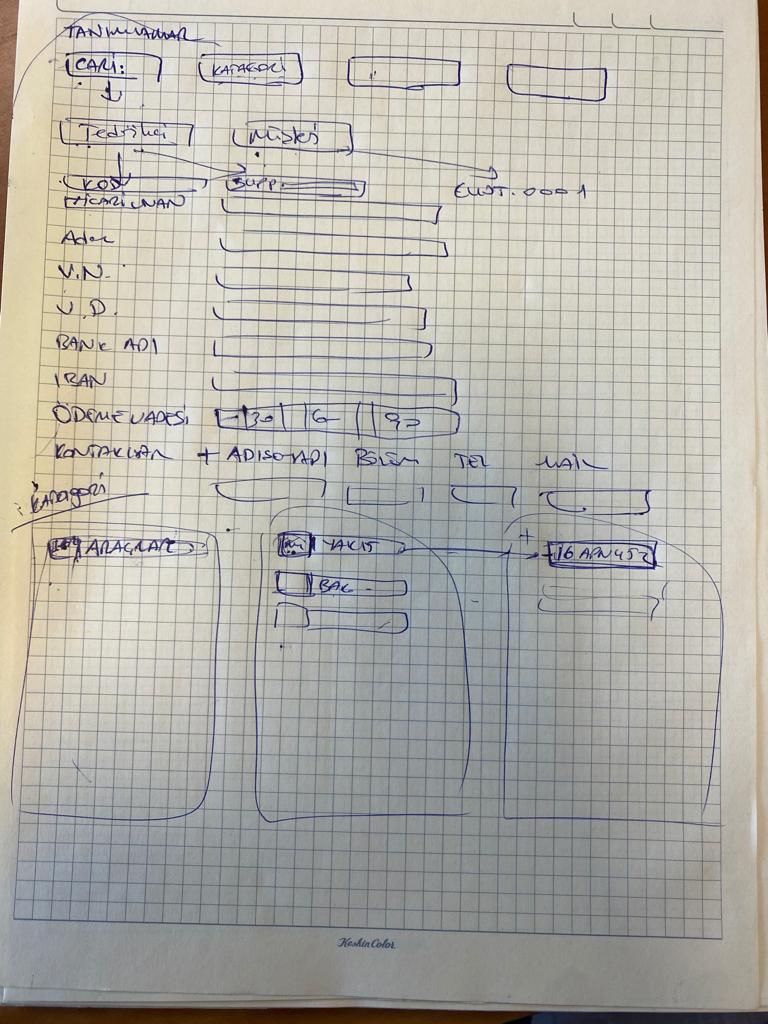 TANIMLAMALAR
CARİ: KATAGORİ
Tedarikçi Müşteri
KOD SUPP. CUST.0001
CARİ UNVAN
Adres
V.N.
V.D.
BANK ADI
IBAN
ÖDEME VADESİ 30 60 90
KONTAKLAR + ADI SOYADI Bölüm TEL MAİL
Katagori
ARAÇLAR YAKIT + 16 APN 452
BAK
KeskinColor